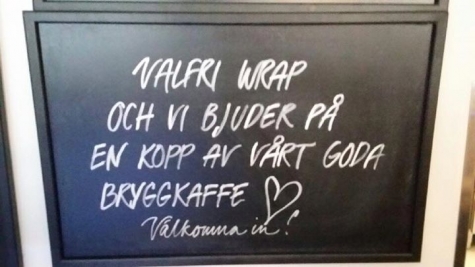 VALFRI WRAP
OCH VI BJUDER PÅ
EN KOPP AV VÅRT GODA
BRYGGKAFFE
Välkomna in!